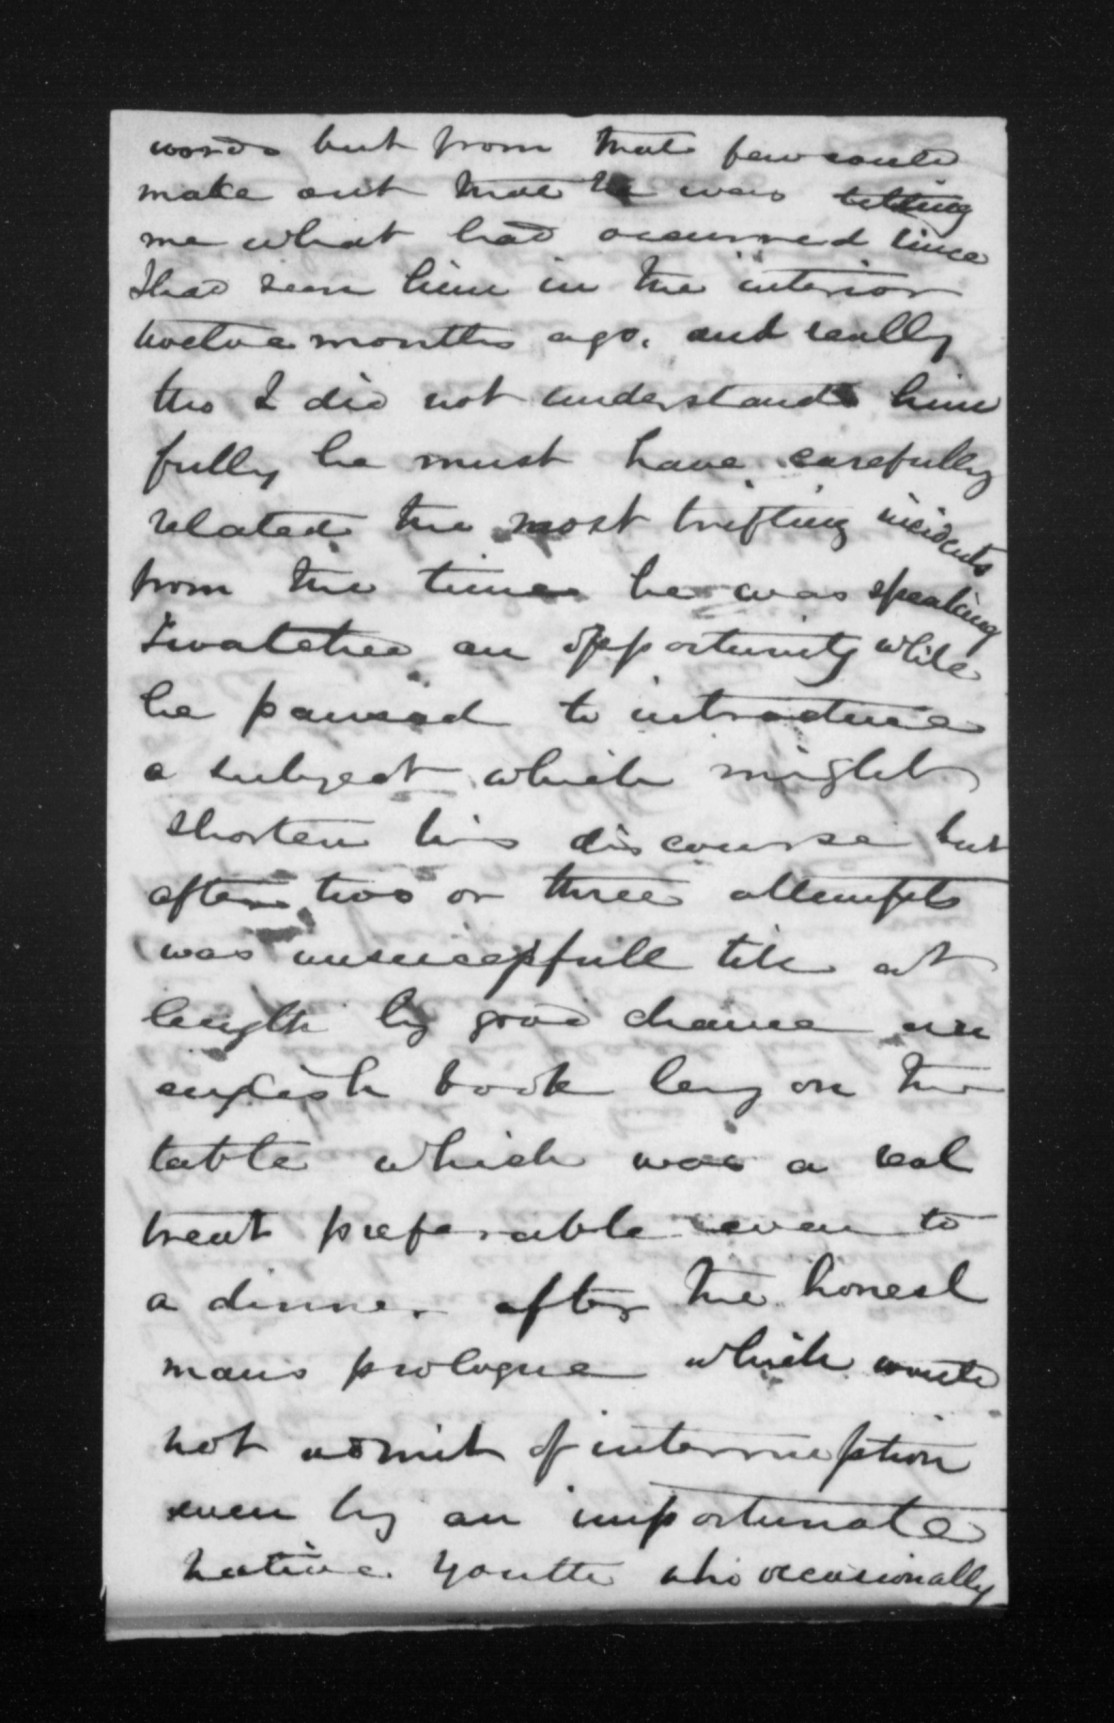 words but from that few could
make out that he was telling
me what had occurred since
I had seen him in the interior
twelve months ago. and really
tho I did not understand him
fully he must have carefully
related the most trifling incidents
from the time he was speaking
I watched an opportunity while
he paused to introduce
a subject which might
shorten his discourse but
after two or three attempts
was unsuccessfull till at
length by good chance an
english book lay on the
table which was a real
treat preferable even to
a dinner after the honest
mans prologue which would
not admit of interruption
even by an importunate
native youth who occasionally